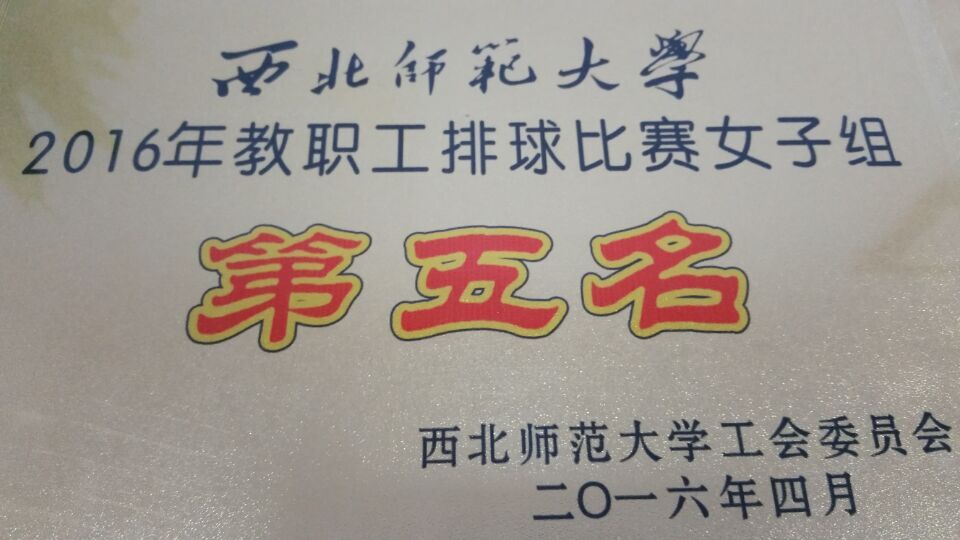 西北师范大学
2016年教职工排球比赛女子组
第五名
西北师范大学工会委员会
二〇一六年四月